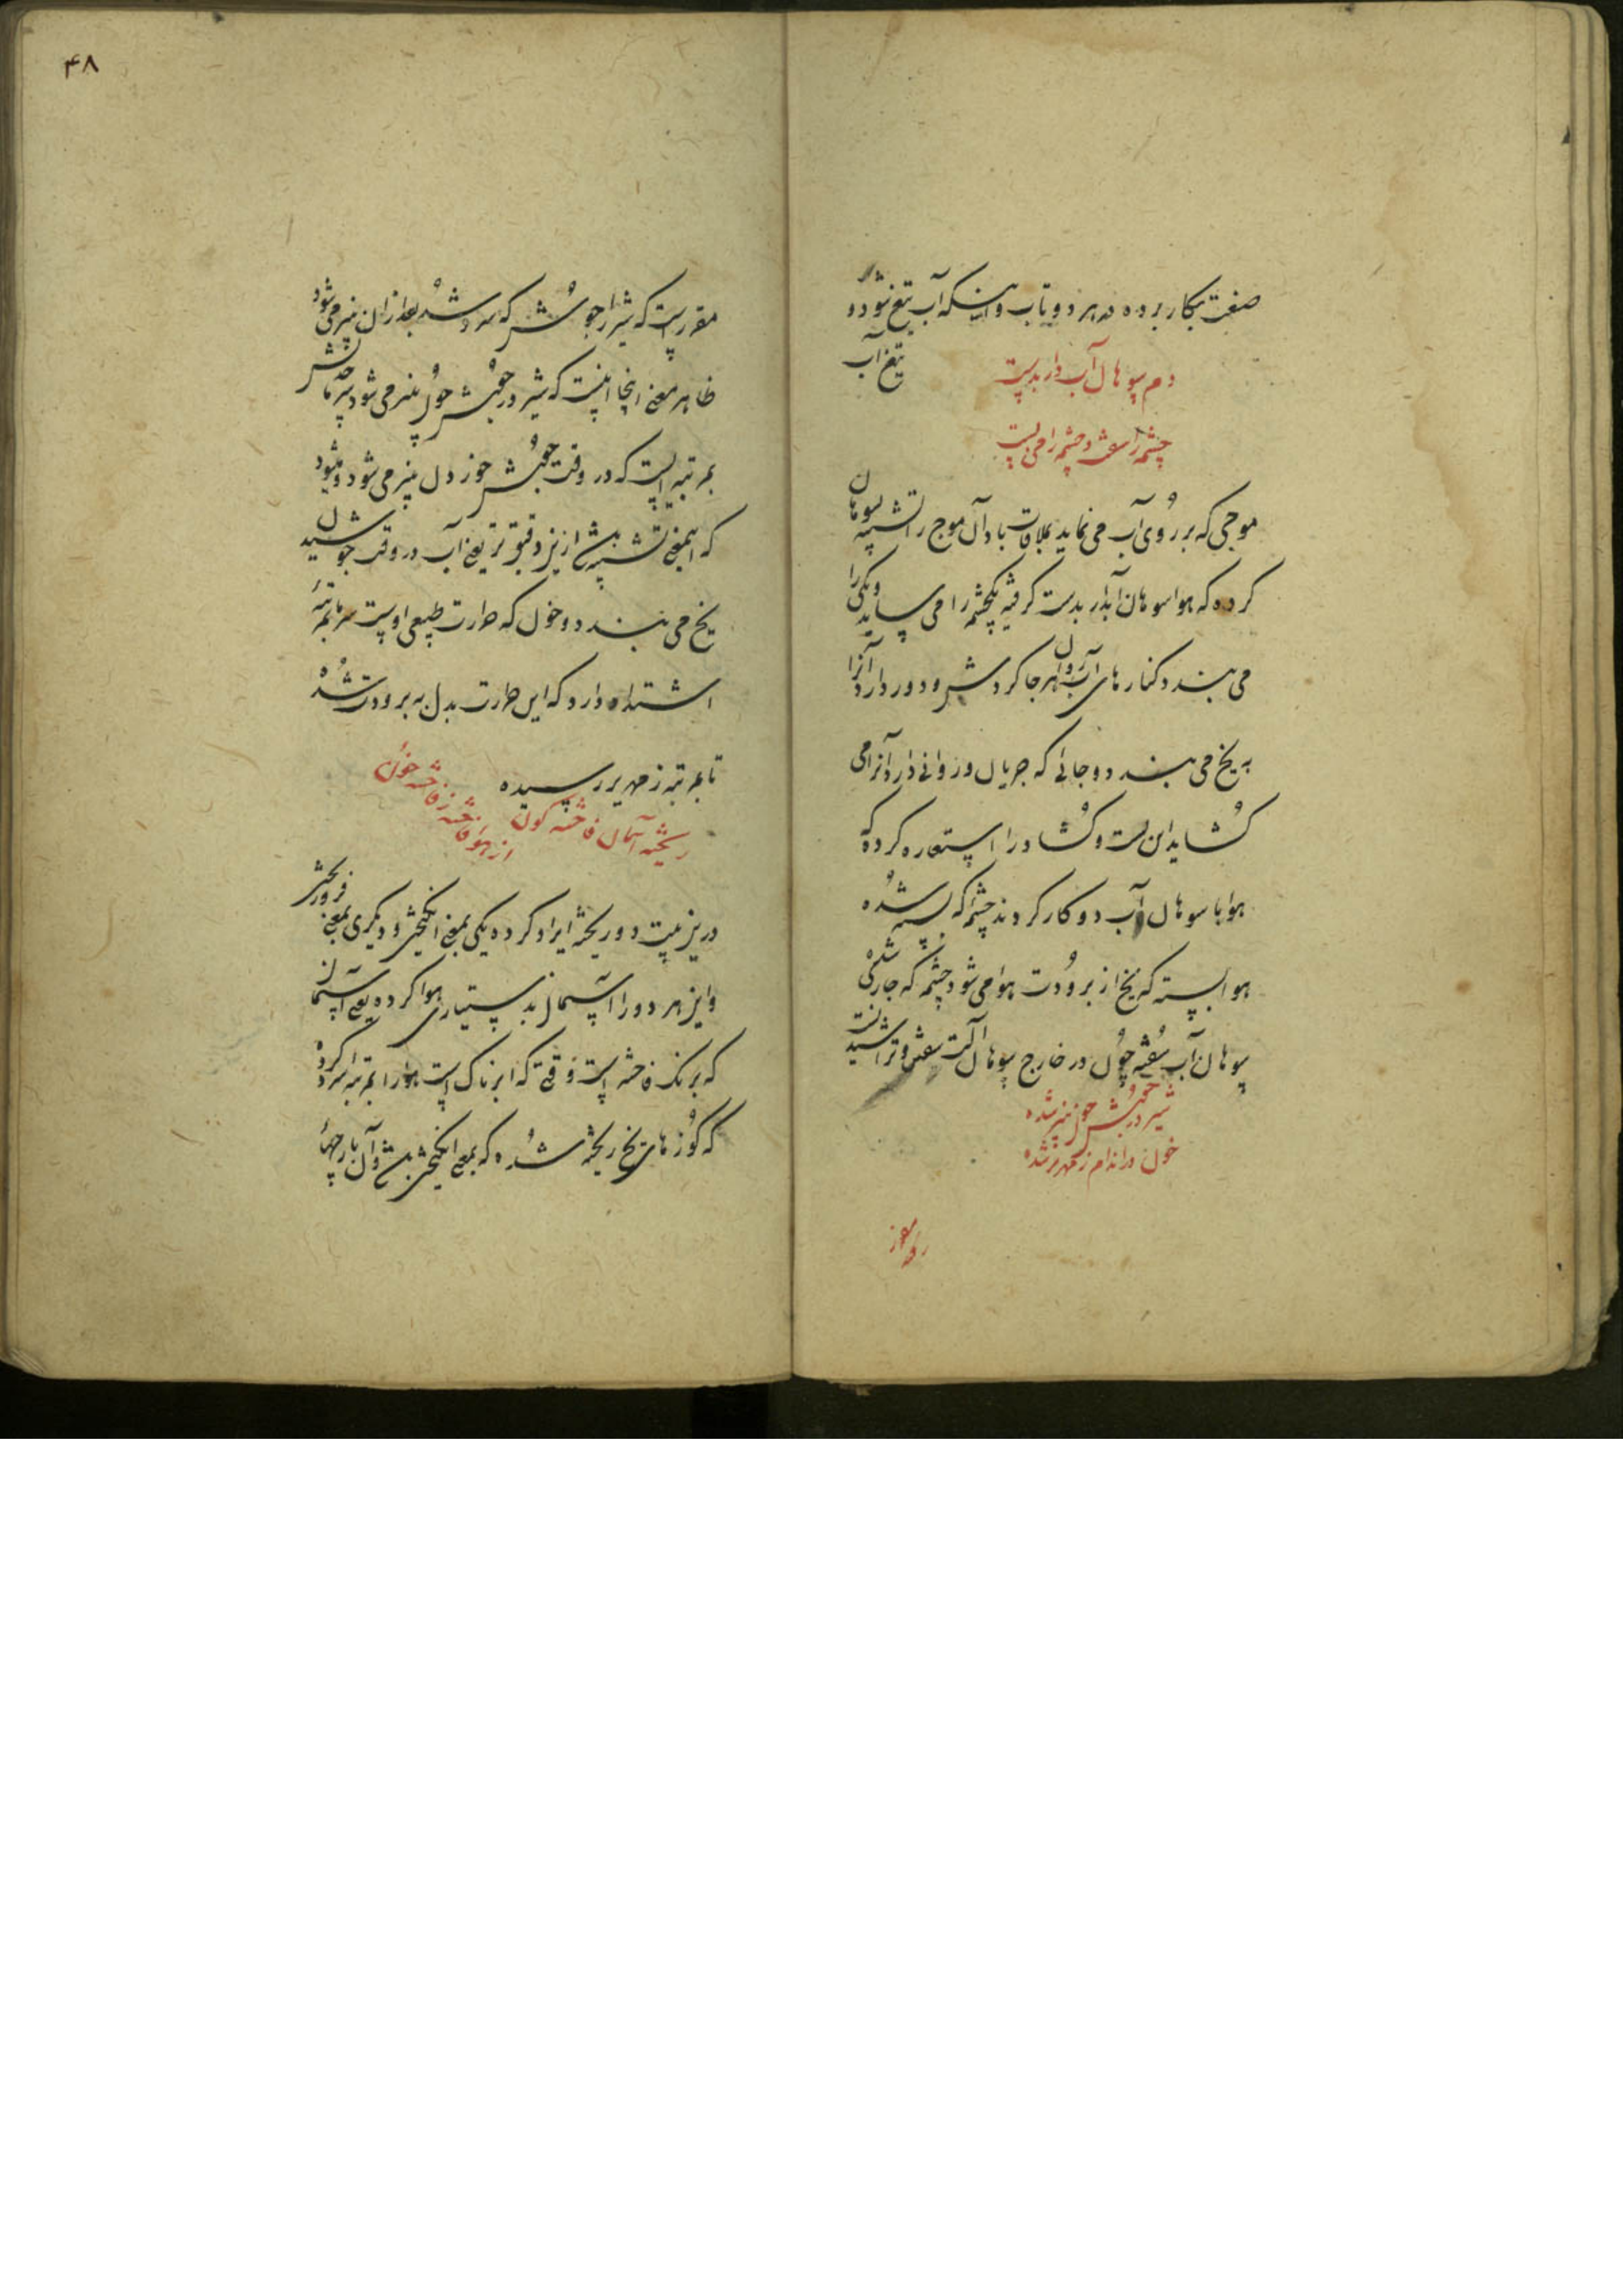 صفت بکار برده در هر دو تاب و اینکه آب تیغ شود و
تیغ آب
دم سوهان آب دار بدست
چشمه را سفت و چشمه را می بست
موجی که بر روی آب می نماید بملاقات باد آن موج را تشبیه بسوهان
کرده که هوا سوهان آبدار بدست گرفته یکچشمه را می ساید و یکی را
می بندد کنارهای آب هر جا که
به یخ می بندد و جائی که جریان و روانی دارد آنرا می
گشاید این بست و گشاد را استعاره کرده که
هوا با سوهان آب دو کار کرد چشمه که بسته شده
هوا بسته که یخ از برودت هوا می شود و چشمه که جاری شده
سوهان آب سفته چون در خارج سوهان آلت سفتن و تراشیدنست
شیر در جوشش چون پنیر شده
خون در اندام زمهریر شده
۴۸
مقررست که شیر را جوشش که سرد شد بعد از آن پنیر می شود
ظاهر معنی اینجا اینست که شیر در جوشش چون پنیر می شود سرما
بمرتبه ایست که در وقت جوشش پنیر می شود
که بمعنی ازین دقیق تر یعنی آب در وقت جوشیدن
یخ می بندد و خون که حرارت طبیعی اوست سرما بمرتبه
اشتداد دارد که این حرارت بدل به برودت شده
تا بمرتبه زمهریر رسیده
ریخته آسمان فاخته گون
از هوا فاخته ز فاخته خون
درین بیت دو ریخته ایراد کرده یکی بمعنی انگیختن و دیگری بمعنی فرو ریختن
و این هر دو را آسمان بدستیاری هوا کرده یعنی آسمان
که برنگ فاخته است وقتی که ابرناک است هوا را بمرتبه سرد کرده
که کوزهای یخ ریخته شده که بمعنی انگیختن